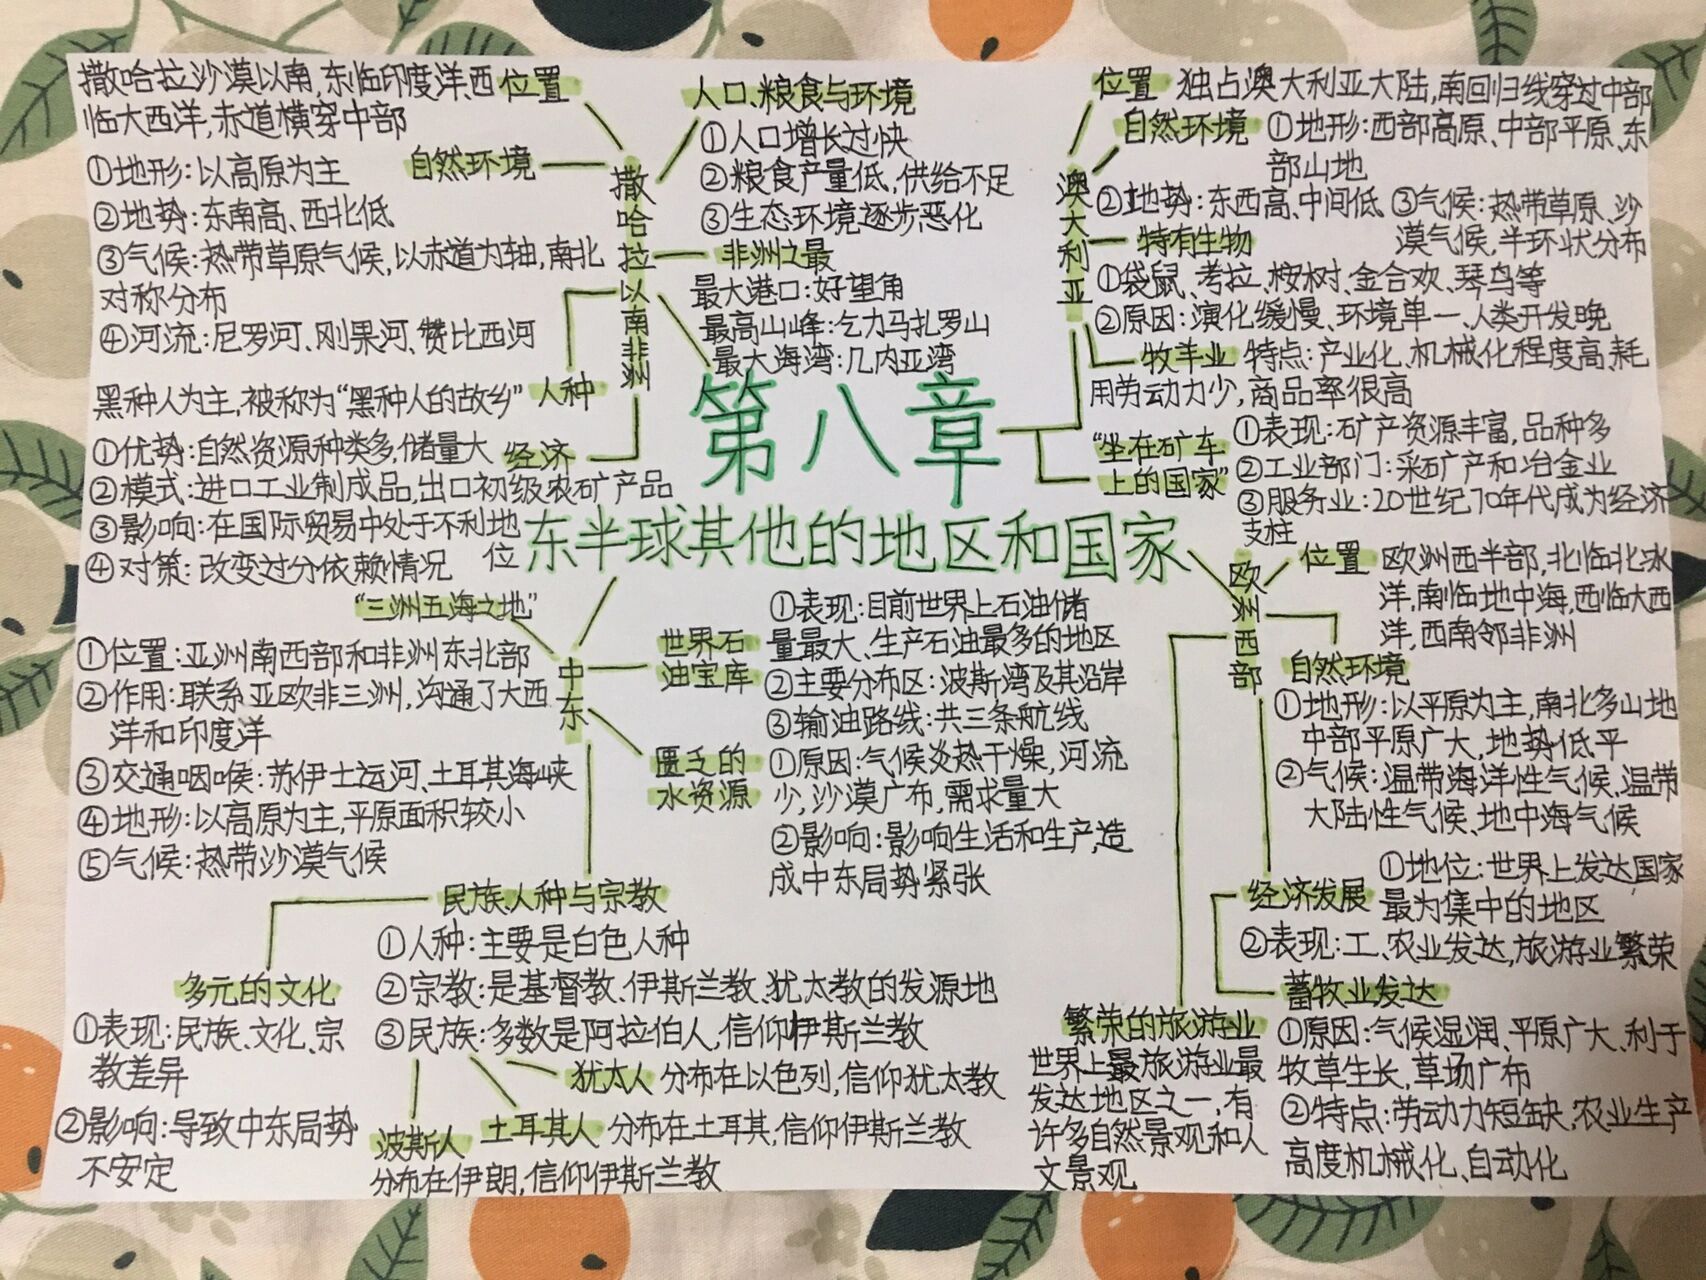 第八章
东半球其他的地区和国家
撒哈拉以南非洲
位置
撒哈拉沙漠以南,东临印度洋、西
临大西洋,赤道横穿中部
自然环境
①地形:以高原为主
②地势:东南高、西北低
③气候:热带草原气候,以赤道为轴,南北
对称分布
④河流:尼罗河、刚果河、赞比西河
人种
黑种人为主,被称为“黑种人的故乡”
经济
①优势:自然资源种类多,储量大
②模式:进口工业制成品,出口初级农矿产品
③影响:在国际贸易中处于不利地
位
④对策:改变过分依赖情况
人口、粮食与环境
①人口增长过快
②粮食产量低,供给不足
③生态环境逐步恶化
非洲之最
最大港口:好望角
最高山峰:乞力马扎罗山
最大海湾:几内亚湾
澳大利亚
位置 独占澳大利亚大陆,南回归线穿过中部
自然环境 ①地形:西部高原、中部平原、东
部山地
②地势:东西高、中间低 ③气候:热带草原、沙
漠气候,半环状分布
特有生物
①袋鼠、考拉、桉树、金合欢、琴鸟等
②原因:演化缓慢、环境单一、人类开发晚
牧羊业 特点:产业化、机械化程度高、耗
用劳动力少,商品率很高
“坐在矿车
上的国家”
①表现:矿产资源丰富,品种多
②工业部门:采矿产和冶金业
③服务业:20世纪70年代成为经济
支柱
中东
“三洲五海之地”
①位置:亚洲南西部和非洲东北部
②作用:联系亚欧非三洲,沟通了大西
洋和印度洋
③交通咽喉:苏伊士运河、土耳其海峡
④地形:以高原为主,平原面积较小
⑤气候:热带沙漠气候
世界石
油宝库
①表现:目前世界上石油储
量最大、生产石油最多的地区
②主要分布区:波斯湾及其沿岸
③输油路线:共三条航线
匮乏的
水资源
①原因:气候炎热干燥,河流
少,沙漠广布,需求量大
②影响:影响生活和生产,造
成中东局势紧张
民族、人种与宗教
①人种:主要是白色人种
②宗教:是基督教、伊斯兰教、犹太教的发源地
③民族:多数是阿拉伯人,信仰伊斯兰教
犹太人 分布在以色列,信仰犹太教
土耳其人 分布在土耳其,信仰伊斯兰教
波斯人
分布在伊朗,信仰伊斯兰教
多元的文化
①表现:民族、文化、宗
教差异
②影响:导致中东局势
不安定
欧洲西部
位置 欧洲西半部,北临北冰
洋,南临地中海,西临大西
洋,西南邻非洲
自然环境
①地形:以平原为主,南北多山地
中部平原广大,地势低平
②气候:温带海洋性气候、温带
大陆性气候、地中海气候
经济发展
①地位:世界上发达国家
最为集中的地区
②表现:工、农业发达,旅游业繁荣
畜牧业发达
①原因:气候湿润、平原广大、利于
牧草生长,草场广布
②特点:劳动力短缺,农业生产
高度机械化、自动化
繁荣的旅游业
世界上最旅游业最
发达地区之一,有
许多自然景观和人
文景观